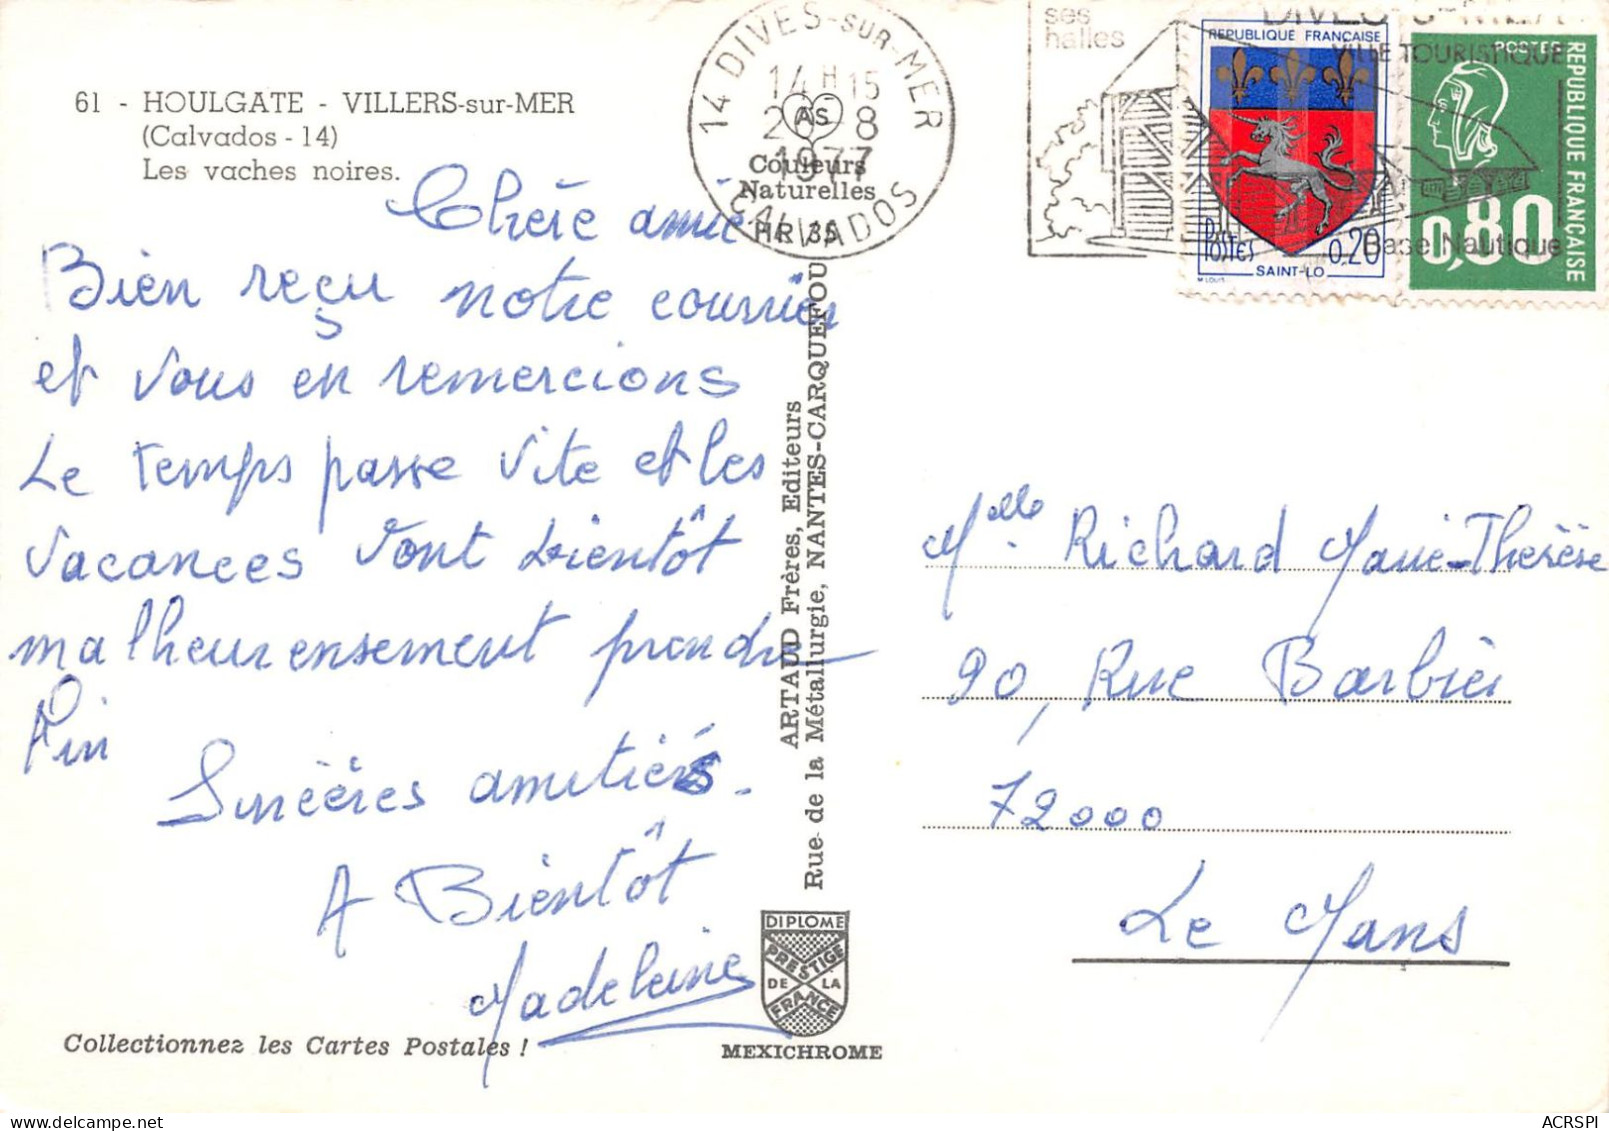 61 - HOULGATE - VILLERS-sur-MER
(Calvados - 14)
Les vaches noires.
Chère amie
Bien reçu notre courrier
et vous en remercions
Le temps passe vite et les
vacances vont bientôt
malheureusement prendre
fin
Sincères amitiés.
A Bientôt
Madeleine
Collectionnez les Cartes Postales !
14 DIVES-SUR-MER
14 H 15
1977
CALVADOS
AS
Couleurs
Naturelles
HR 35
ARTAUD Frères, Editeurs
Rue de la Métallurgie, NANTES-CARQUEFOU
DIPLOME
PRESTIGE
DE LA
FRANCE
MEXICHROME
ses
halles
DIVES-S-MER
VILLE TOURISTIQUE
Base Nautique
REPUBLIQUE FRANÇAISE
Postes
0,20
SAINT-LO
POSTES
REPUBLIQUE FRANÇAISE
0,80
Melle Richard Marie-Thérèse
90, Rue Barbier
72000
Le Mans
ACRSPI